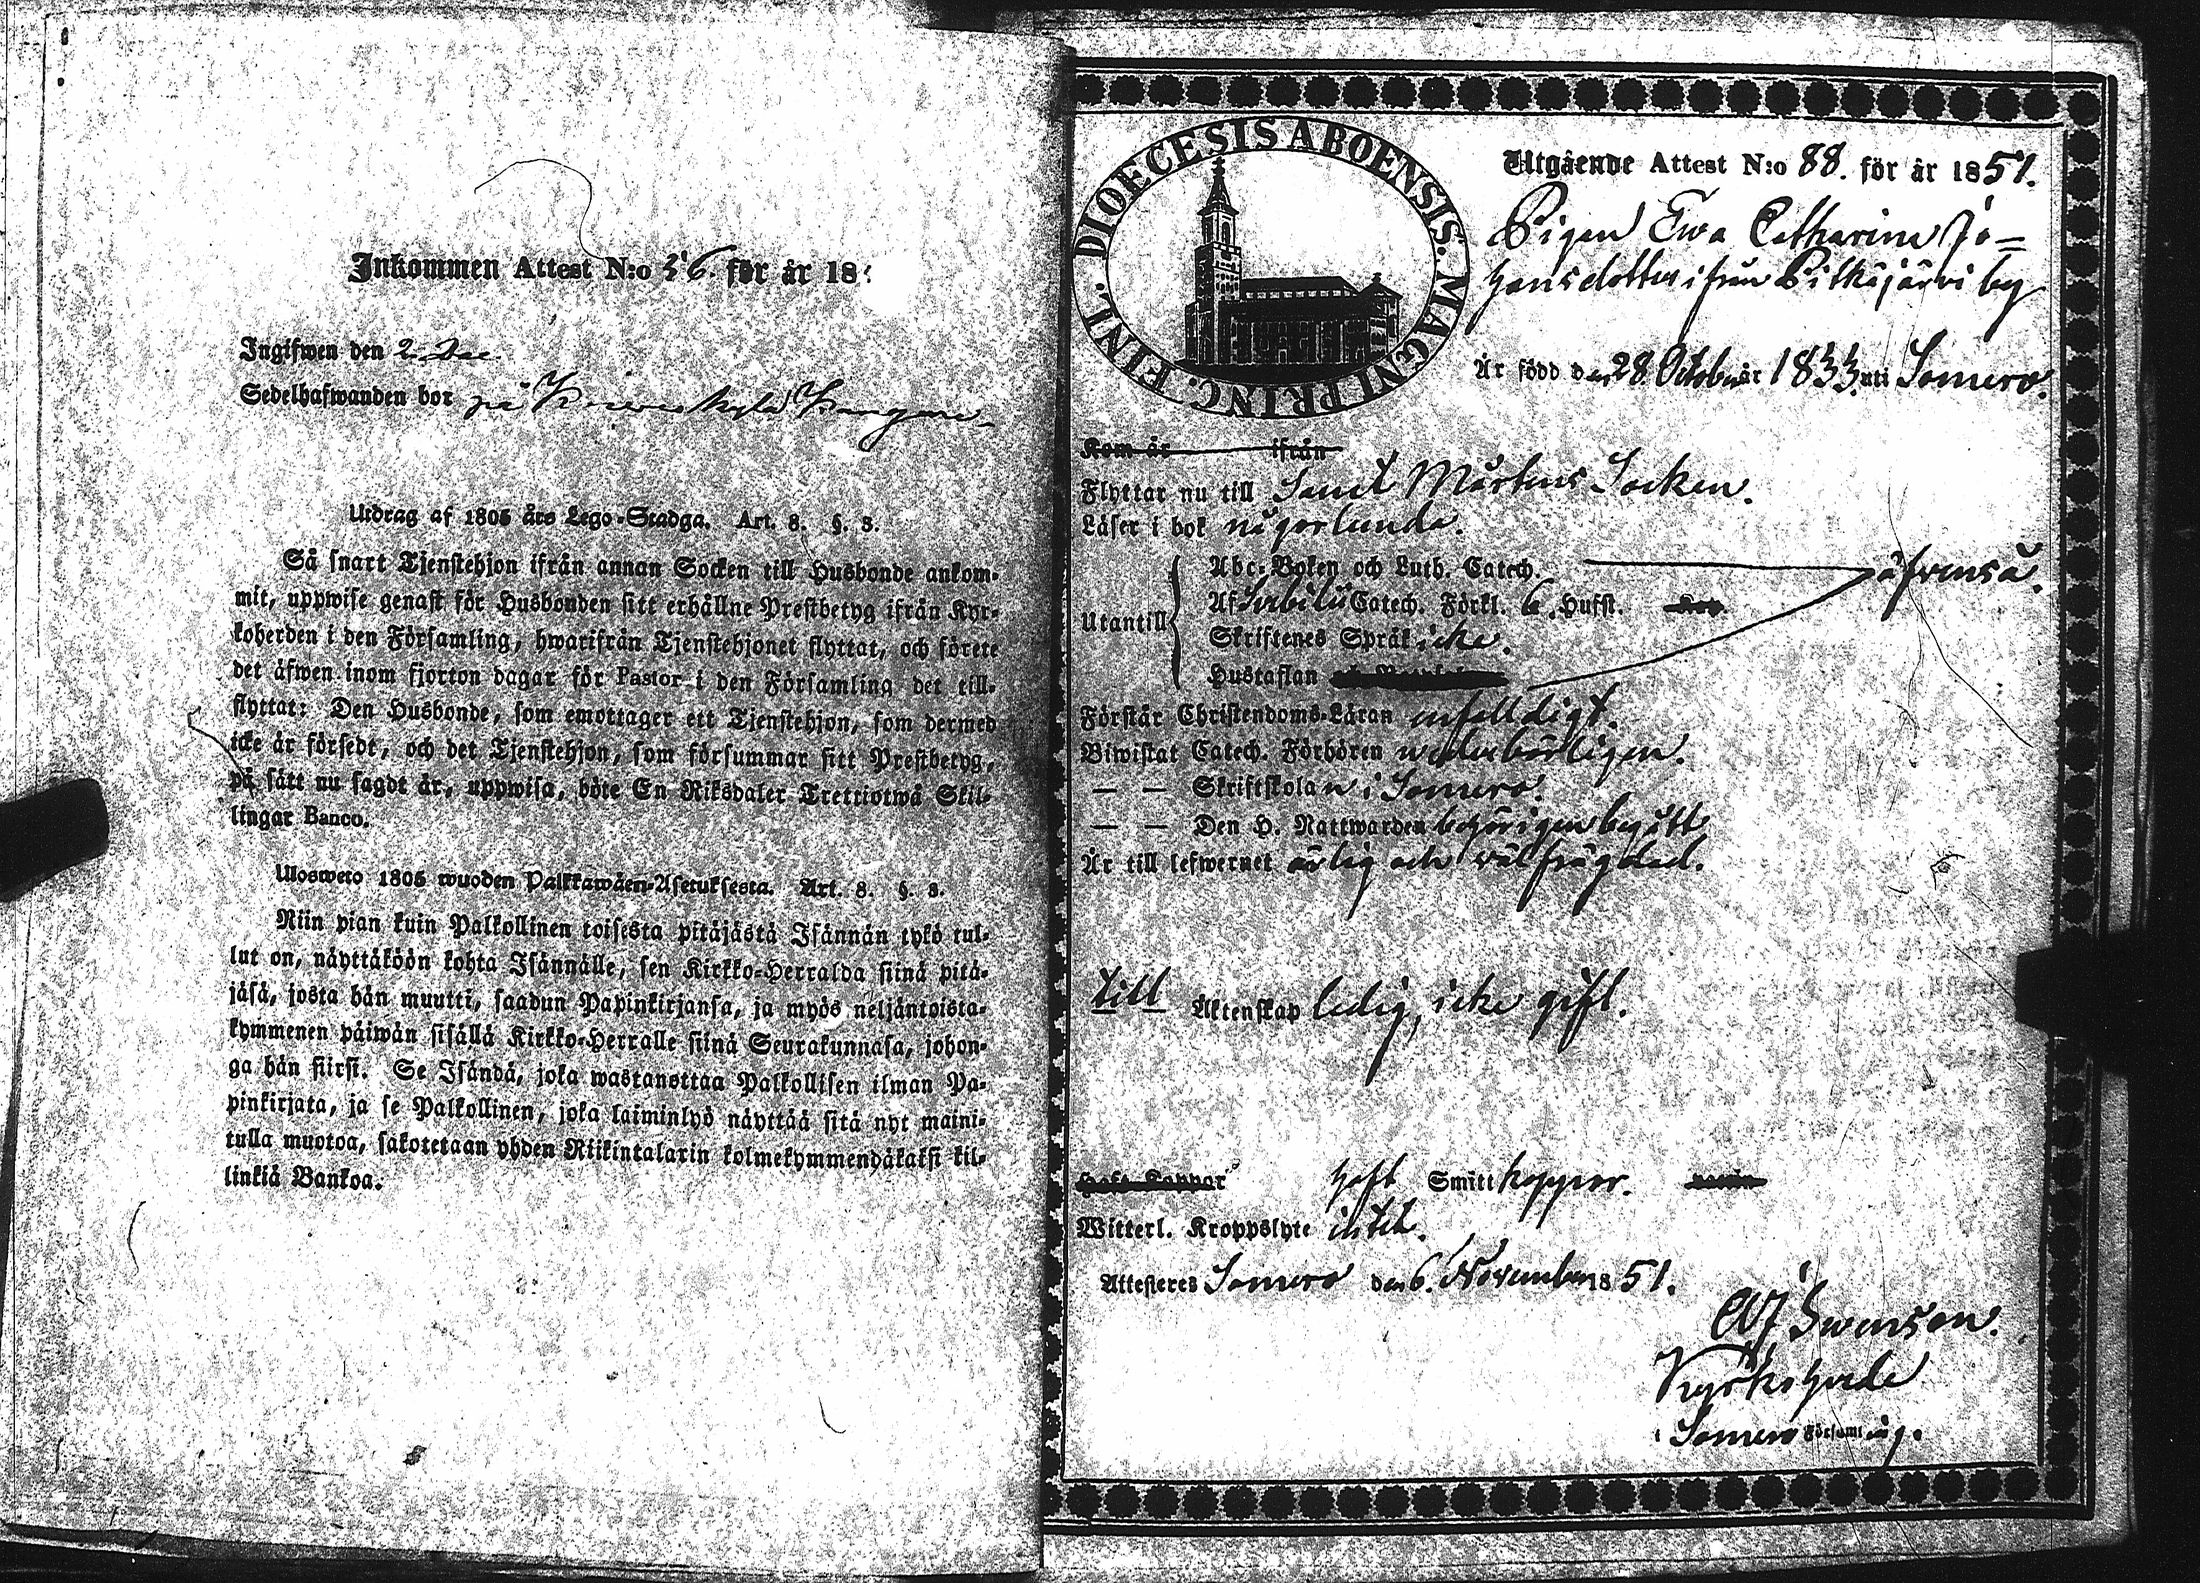 Inkommen Attest N:o 36. för år 18
Ingifwen den 2 Dec.
Sedelhafwanden bor på
Utdrag af 1805 års Lego-Stadga. Art. 8. §. 3.
Så snart Tjenstehjon ifrån annan Socken till Husbonde ankom-
mit, uppwise genast för Husbonden sitt erhållne Prestbetyg ifrån Kyr-
koherden i den Församling, hwarifrån Tjenstehjonet flyttat, och förete
det äfwen inom fjorton dagar för Pastor i den Församling det till-
flyttat: Den Husbonde, som emottager ett Tjenstehjon, som dermed
icke är försedt, och det Tjenstehjon, som försummar sitt Prestbetyg,
på sätt nu sagdt är, uppwisa, böte En Riksdaler Trettiotwå Skil-
lingar Banco.
Ulosweto 1805 wuoden Palkkawäen-Asetuksesta. Art. 8. §. 3.
Niin pian kuin Palkollinen toisesta pitäjästä Isännän tykö tul-
lut on, näyttäköön kohta Isännälle, sen Kirkko-Herralda siinä pitä-
jäsä, josta hän muutti, saadun Papinkirjansa, ja myös neljäntoista-
kymmenen päiwän sisällä Kirkko-Herralle siinä Seurakunnasa, johon-
ga hän siirsi. Se Isändä, joka wastanottaa Palkollisen ilman Pa-
pinkirjata, ja se Palkollinen, joka laiminlyö näyttää sitä nyt maini-
tulla muotoa, sakotetaan yhden Riikintalarin kolmekymmendäkaksi kil-
linkiä Bankoa.
DIOECESIS ABOENSIS. MAGNI PRINC. FINL.
Utgående Attest N:o 88. för år 1851.
Pigan Ewa Catharina Jo=
hansdotter ifrån Pitkäjärvi by
Är född den 28. October år 1833. uti Somero.
Kom år ifrån
Flyttar nu till Sanct Mårtens Socken.
Läser i bok någorlunda.
Utantill
Abc-Boken och Luth. Catech. äfvenså.
Af Svebilii Catech. Förkl. 6. Hufst.
Skriftenes Språk icke.
Hustaflan
Förstår Christendoms-Läran enfaldigt.
Biwistat Catech. Förhören wederbörligen.
— — Skriftskolan i Somero.
— — Den H. Nattwarden behörigen begått
Är till lefwernet ärlig och välfrägdad.
till Äktenskap ledig, icke gift.
Haft Koppor haft Smittkoppor.
Witterl. Kroppslyte intet.
Attesteres Somero den 6. November 1851.
Swenson.
Kyrkoherde
i Somero Församling.